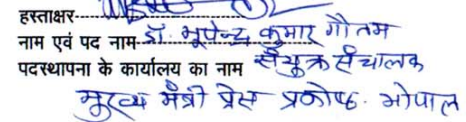 हस्ताक्षर
नाम एवं पद नाम डॉ. भूपेन्द्र कुमार गौतम
पदस्थापना के कार्यालय का नाम संयुक्त संचालक
मुख्य मंत्री प्रेस प्रकोष्ठ. भोपाल